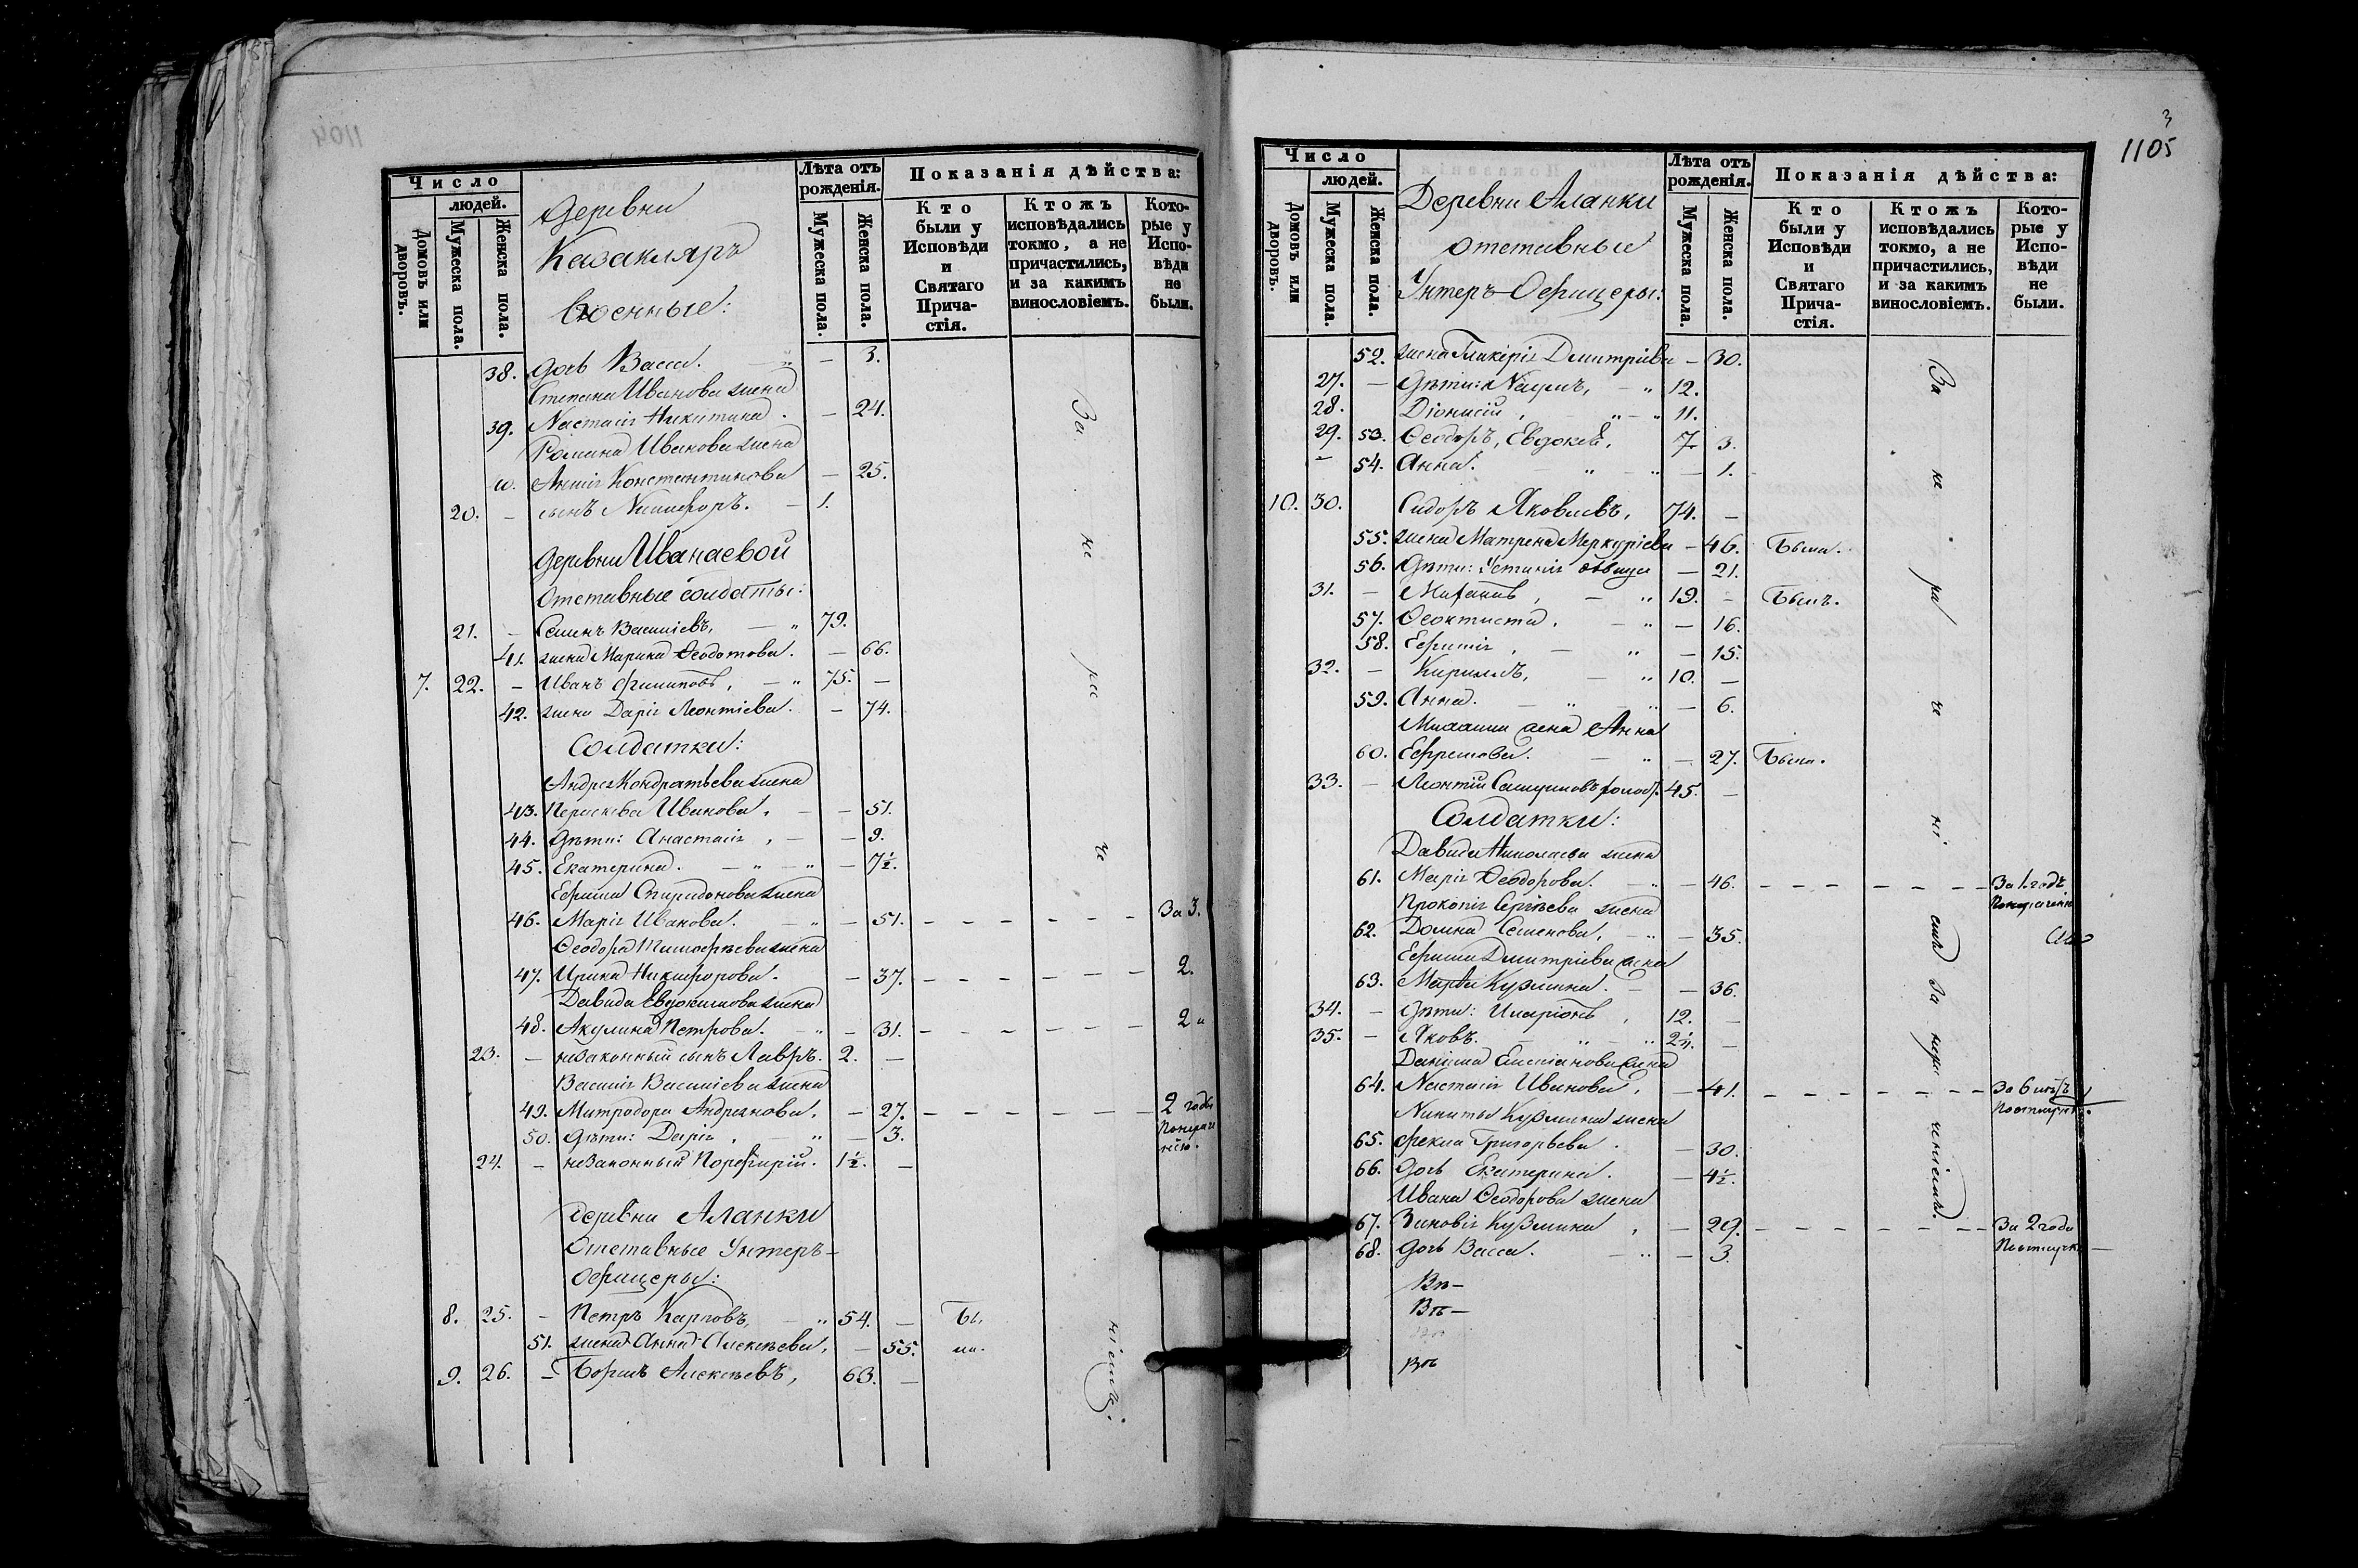 1104
Число
людей.
Домовъ или дворовъ.
Мужеска пола.
Женска пола.
Деревни
Казакляръ
Военные:
Лѣта отъ рожденія.
Мужеска пола.
Женска пола.
Показанія дѣйства:
Кто были у Исповѣди и Святаго Прича-стія.
Ктожъ исповѣдались токмо, а не причастились, и за какимъ винословіемъ.
Кото-рые у Испо-вѣди не были.
38. дочь Васса. — 3.
Степана Иванова жена
39. Настасія Никитина. — 24.
Романа Иванова жена
40. Анна Константинова — 25.
20. — сынъ Никифоръ. — 1.
Деревни Иванаевой
Отставные солдаты:
21. — Семенъ Василіевъ, — 79.
41. жена Марина Ѳеодотова. — 66.
7. 22. — Иванъ Филиповъ, — 75. —
42. жена Дарія Леонтіева. — 74.
Солдатки:
Андрея Кондратьева жена
43. Параскева Иванова. — 51.
44. Дѣти: Анастасія, — 9.
45. Екатерина. — 7½.
Ефима Спиридонова жена
46. Марія Иванова. — 51. — За 3.
Ѳеодора Тимофѣева жена
47. Ирина Никифорова. — 37. — 2.
Давида Евдокимова жена
48. Акулина Петрова. — 31. — 2
23. — незаконный сынъ Лавръ. 2. —
Василія Василіева жена
49. Митродора Андреянова. — 27. — 2 года
50. Дѣти: Дарія, — 3.
24. — незаконный Порфирій. 1½. —
Деревни Аланки
Отставные Унтеръ-
Офицеры:
8. 25. — Петръ Карповъ, 54. — Бы
51. жена Анна Алексѣева, — 55. ли.
9. 26. — Борисъ Алексѣевъ, 63. —
За не ра че ніемъ.
3
1105
Число
людей.
Домовъ или дворовъ.
Мужеска пола.
Женска пола.
Деревни Аланки
отставные
Унтеръ-Офицеры:
Лѣта отъ рожденія.
Мужеска пола.
Женска пола.
Показанія дѣйства:
Кто были у Исповѣди и Святаго Прича-стія.
Ктожъ исповѣдались токмо, а не причастились, и за какимъ винословіемъ.
Кото-рые у Испо-вѣди не были.
52. жена Гликерія Дмитріева — 30.
27. — Дѣти: Наумъ, 12.
28. Діонисій, 11.
29. 53. Ѳеодоръ, Евдокія, 7. 3.
54. Анна. — 1.
10. 30. Сидоръ Яковлевъ, 74. —
55. жена Матрена Меркуріева — 46. Была.
56. Дѣти: Устинія дѣвица — 21.
31. — 19. — Былъ.
57. Ѳеоктиста, — 16.
58. Ефимія, — 15.
32. — Кириллъ, 10. —
59. Анна. — 6.
Михаила жена Анна
60. Ефремова. — 27. Была.
33. — Леонтій 45. —
Солдатки:
Давида Николаева жена
61. Марія Ѳеодорова. — 46. — За 1. годъ
Прокопія Сергѣева жена
62. Домна Семенова, — 35.
Ефима Дмитріева жена
63. Марѳа Кузмина. — 36.
34. — Дѣти: Иларіонъ, 12. —
35. — Яковъ. 2¼. —
64. Настасія Иванова, — 41. — За 6
Никиты Кузмина жена
65. Фекла Григорьева. — 30.
66. дочь Екатерина. — 4½.
Ивана Ѳеодорова жена
67. Зиновія Кузмина, — 29. — За 2 года
68. дочь Васса. — 3.
За не ра че ні емъ